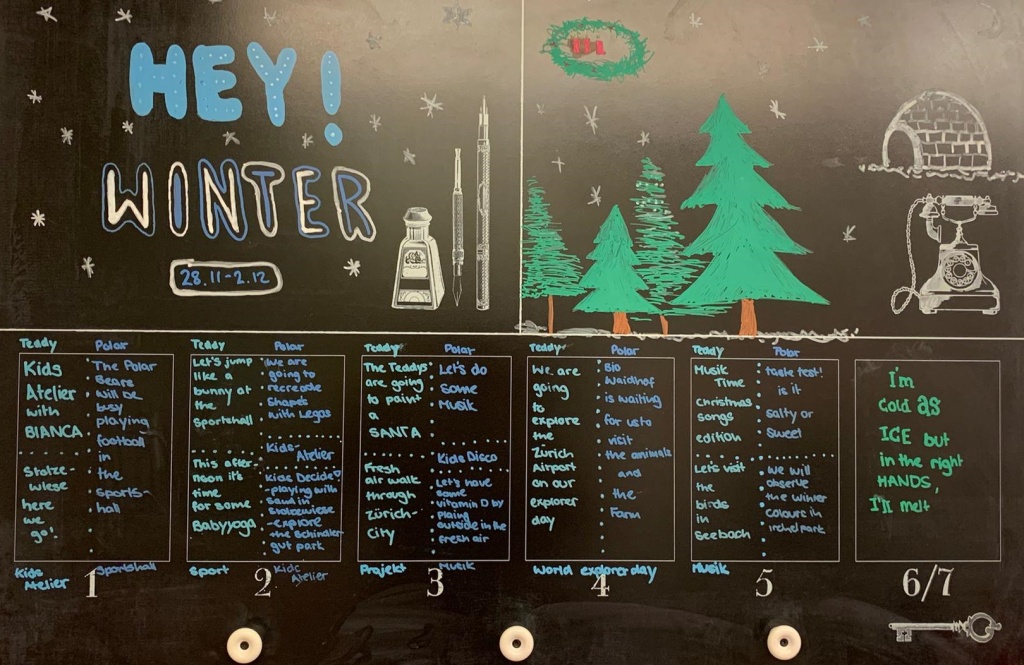 HEY!
WINTER
28.11-2.12
Hi
Teddy
Kids
Atelier
with
BIANCA
Stolze-
wiese
here
we
go!
Kids
Atelier
Polar
The Polar
Bears
will be
busy
playing
football
in
the
sports-
hall
Sportshall
1
Teddy
Let's jump
like a
bunny at
the
Sportshall
This after-
noon it's
time
for some
Babyyoga
Sport
Polar
We are
going to
recreate
Shapes
with Legos
Kids-
Atelier
Kids Decide
-playing with
sand in
Stolzewiese
-explore
the Schindler
gut park
Kids
Atelier
2
Teddy
The Teddys
are going
to paint
a
SANTA
Fresh
air walk
through
Zürich-
City
Projekt
Polar
Let's do
Some
Musik
Kids Disco
Let's have
some
vitamin D by
plaing
outside in the
fresh air
Musik
3
Teddy
We are
going
to
explore
the
Zürich
Airport
on our
explorer
day
Polar
Bio
Waidhof
is waiting
for us to
visit
the animals
and
the
Farm
World explorer day
4
Teddy
Musik
Time
Christmas
songs
edition
Let's visit
the
birds
in
Seebach
Musik
Polar
taste test!
is it
Salty or
Sweet
We will
observe
the winter
colours in
irchelpark
5
I'm
Cold as
ICE but
in the right
HANDS,
I'll melt
6/7